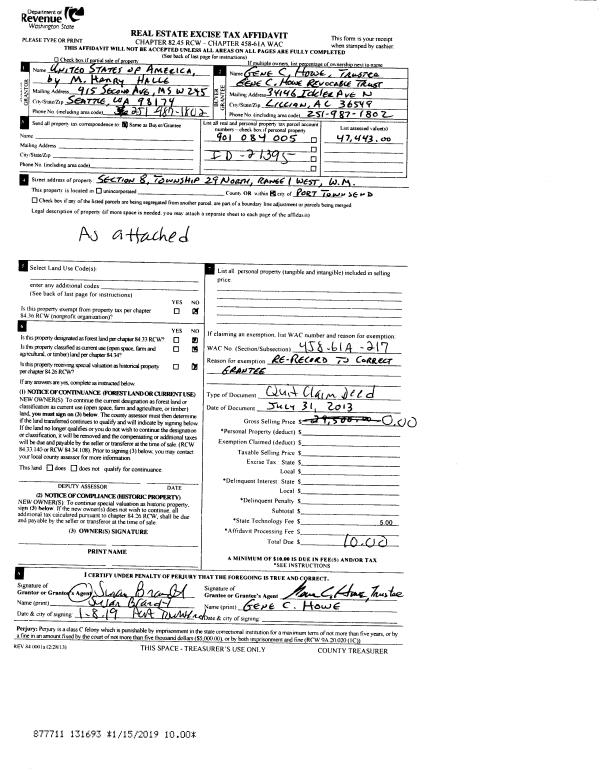 Department of
Revenue
Washington State
REAL ESTATE EXCISE TAX AFFIDAVIT
This form is your receipt
PLEASE TYPE OR PRINT
CHAPTER 82.45 RCW – CHAPTER 458-61A WAC
when stamped by cashier.
THIS AFFIDAVIT WILL NOT BE ACCEPTED UNLESS ALL AREAS ON ALL PAGES ARE FULLY COMPLETED
(See back of last page for instructions)
Check box if partial sale of property
If multiple owners, list percentage of ownership next to name
1 Name UNITED STATES OF AMERICA,
by M. HENRY HALLE
GRANTOR
Mailing Address 915 SECOND AVE, MS W245
City/State/Zip SEATTLE, WA 98174
Phone No. (including area code) 251-987-1802
2 Name GENE C. HOWE, TRUSTEE
GENE C. HOWE REVOCABLE TRUST
GRANTEE
Mailing Address 34146 IDLER AVE N
City/State/Zip LILLIAN, AL 36549
Phone No. (including area code) 251-987-1802
3 Send all property tax correspondence to: Same as Buyer/Grantee
Name
Mailing Address
City/State/Zip
Phone No. (including area code)
List all real and personal property tax parcel account
numbers – check box if personal property
901 084 005
ID-21395
List assessed value(s)
47,443.00
4 Street address of property: SECTION 8, TOWNSHIP 29 NORTH, RANGE 1 WEST, W.M.
This property is located in unincorporated County OR within city of PORT TOWNSEND
Check box if any of the listed parcels are being segregated from another parcel, are part of a boundary line adjustment or parcels being merged
Legal description of property (if more space is needed, you may attach a separate sheet to each page of the affidavit)
As attached
5 Select Land Use Code(s):
enter any additional codes
(See back of last page for instructions)
YES NO
Is this property exempt from property tax per chapter
84.36 RCW (nonprofit organization)?
6
YES NO
Is this property designated as forest land per chapter 84.33 RCW?
Is this property classified as current use (open space, farm and
agricultural, or timber) land per chapter 84.34?
Is this property receiving special valuation as historical property
per chapter 84.26 RCW?
If any answers are yes, complete as instructed below.
(1) NOTICE OF CONTINUANCE (FOREST LAND OR CURRENT USE)
NEW OWNER(S): To continue the current designation as forest land or
classification as current use (open space, farm and agriculture, or timber)
land, you must sign on (3) below. The county assessor must then determine
if the land transferred continues to qualify and will indicate by signing below
If the land no longer qualifies or you do not wish to continue the designation
or classification, it will be removed and the compensating or additional taxes
will be due and payable by the seller or transferor at the time of sale. (RCW
84.33.140 or RCW 84.34.108). Prior to signing (3) below, you may contact
your local county assessor for more information
This land does does not qualify for continuance.
DEPUTY ASSESSOR DATE
(2) NOTICE OF COMPLIANCE (HISTORIC PROPERTY)
NEW OWNER(S): To continue special valuation as historic property,
sign (3) below. If the new owner(s) does not wish to continue, all
additional tax calculated pursuant to chapter 84.26 RCW, shall be due
and payable by the seller or transferor at the time of sale.
(3) OWNER(S) SIGNATURE
PRINT NAME
7 List all personal property (tangible and intangible) included in selling
price.
If claiming an exemption, list WAC number and reason for exemption:
WAC No. (Section/Subsection) 458-61A-217
Reason for exemption RE-RECORD TO CORRECT
GRANTEE
Type of Document Quit Claim Deed
Date of Document JULY 31, 2013
Gross Selling Price $ 29,500.00 0.00
*Personal Property (deduct) $
Exemption Claimed (deduct) $
Taxable Selling Price $
Excise Tax : State $
Local $
*Delinquent Interest: State $
Local $
*Delinquent Penalty $
Subtotal $
*State Technology Fee $ 5.00
*Affidavit Processing Fee $
Total Due $ 10.00
A MINIMUM OF $10.00 IS DUE IN FEE(S) AND/OR TAX
*SEE INSTRUCTIONS
8 I CERTIFY UNDER PENALTY OF PERJURY THAT THE FOREGOING IS TRUE AND CORRECT.
Signature of
Grantor or Grantor's Agent
Name (print)
Date & city of signing: 1-8-19 Port Townsend
Signature of
Grantee or Grantee's Agent Gene C. Howe, Trustee
Name (print) GENE C. HOWE
Date & city of signing:
Perjury: Perjury is a class C felony which is punishable by imprisonment in the state correctional institution for a maximum term of not more than five years, or by
a fine in an amount fixed by the court of not more than five thousand dollars ($5,000.00), or by both imprisonment and fine (RCW 9A.20.020 (1C))
REV 84 0001a (2/28/13)
THIS SPACE - TREASURER'S USE ONLY
COUNTY TREASURER
877711 131693 *1/15/2019 10.00*